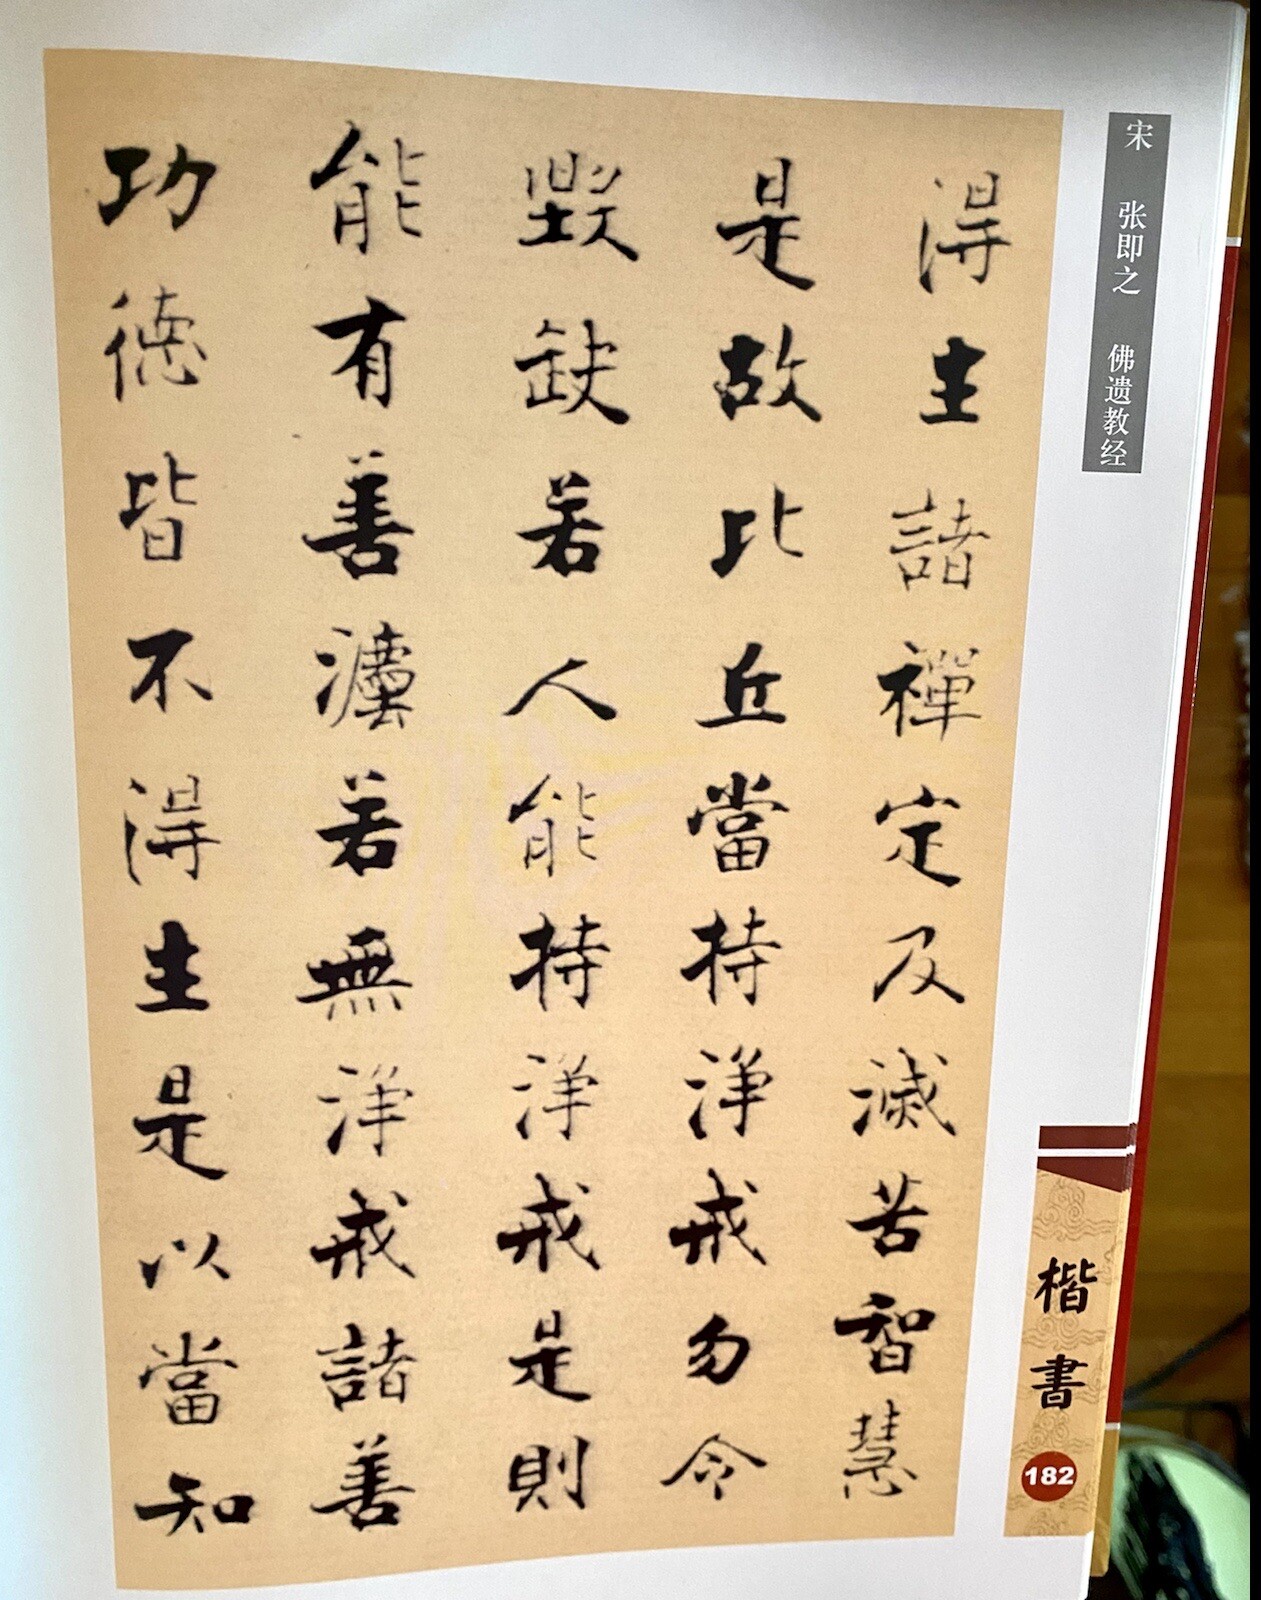 宋 张即之 佛遗教经
得生諸禪定及滅苦智慧
是故比丘當持淨戒勿令
毀缺若人能持淨戒是則
能有善灋若無淨戒諸善
功德皆不得生是以當知
楷書
182